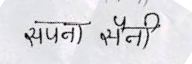 सपना सैनी